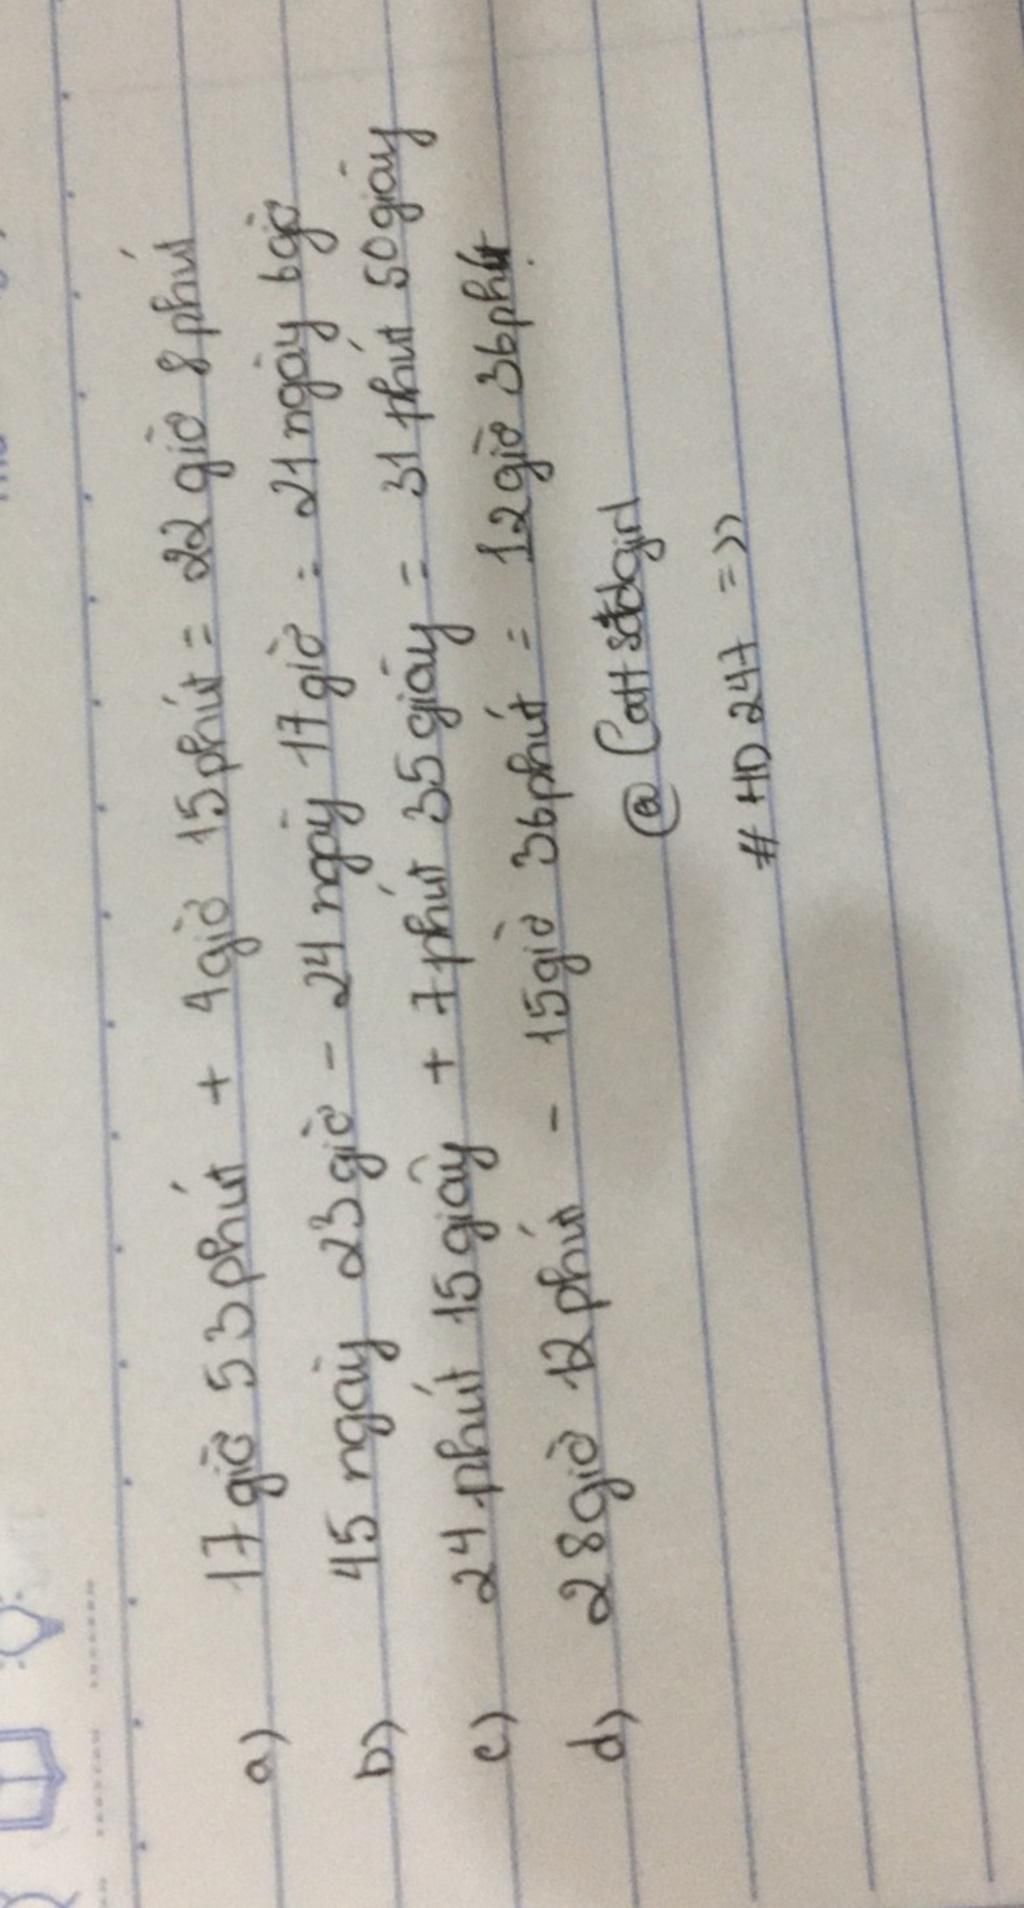 a) 17 giờ 53 phút + 4 giờ 15 phút = 22 giờ 8 phút
b) 45 ngày 23 giờ - 24 ngày 17 giờ = 21 ngày 6 giờ
c) 24 phút 15 giây + 7 phút 35 giây = 31 phút 50 giây
d) 28 giờ 12 phút - 15 giờ 36 phút = 12 giờ 36 phút
# HD 247 =))